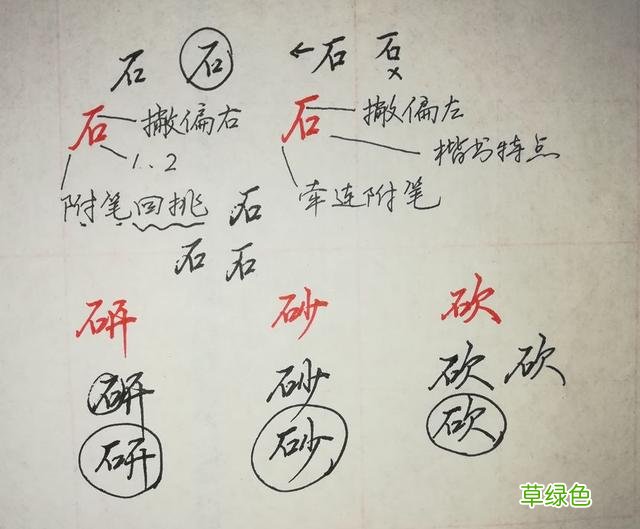 石 石 ←石 石
×
石 撇偏右 石 撇偏左
1.2 楷书特点
附笔回挑 石 牵连附笔
石 石
研 砂 砍
研 砂 砍 砍
研 砂 砍
草绿色